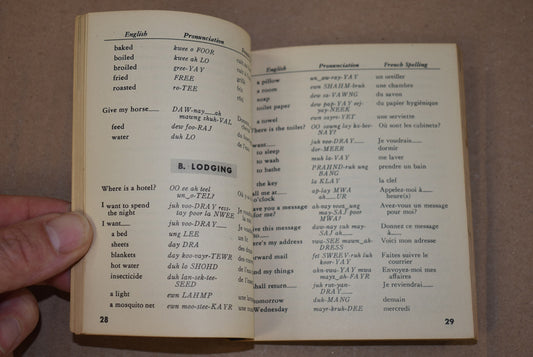 English Pronunciation
baked kwee o FOOR
boiled kwee ah LO
broiled gree-YAY
fried FREE
roasted ro-TEE
Give my horse__ DAW-nay__ ah
mawng shuh-VAL
feed dew foo-RAJ
water duh LO
B. LODGING
Where is a hotel? OO ee ah teel
un_o-TEL?
I want to spend juh voo-DRAY
the night
I want__ juh voo-DRAY__
a bed ung LEE
sheets day DRA
blankets day koo-vayr-TEWR
hot water duh la SHOHD
insecticide duh lan-sek-tee-
SEED
a light ewn LAHMP
a mosquito net ewn moo-stee-KAYR
28
English Pronunciation French Spelling
a pillow un_aw-ray-YAY un oreiller
a room ewn SHAHM-bruk une chambre
soap dew sa-VAWNG du savon
toilet paper dew pap-YAY du papier hygiénique
a towel ewn sayrv-YET une serviette
Where is the toilet? Où sont les cabinets?
want__ juh voo-DRAY__ Je voudrais__
to sleep dor-MEER dormir
to wash muh la-VAY me laver
to bathe PRAHND-ruh ung prendre un bain
BANG
the key la KLAY la clef
call me at__ ap-lay MWA Appelez-moi à__
o'clock ah__UR heure(s)
have you a message Avez-vous un message
for me? may-SAJ poor pour moi?
MWA?
give this message daw-nay suh may- Donnez ce message
to__ SAJ ah__ à__
here's my address Voici mon adresse
forward mail fet SWEEV-ruh luh Faites suivre le
koor-YAY courrier
and my things Envoyez-moi mes
affaires
shall return__ Je reviendrai__
tomorrow duh-MANG demain
Wednesday mayr-kruh-DEE mercredi
29